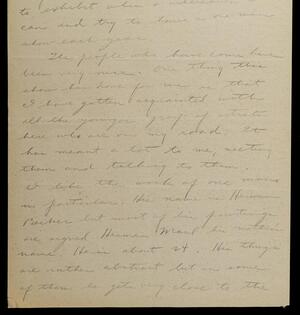 to exhibit when a
can and try to have a one man
show each year.
The people who have come have
been very nice. One thing this
show has done for me is that
I have gotten acquainted with
all the younger group of artists
here who are on my road. It
has meant a lot to me, meeting
them and talking to them.
I like the work of one man
in particular. His name is Herman
but most of his paintings
are signed Herman his mother's
name. He is about 24. His things
are rather abstract but in some
of them he gets very close to the